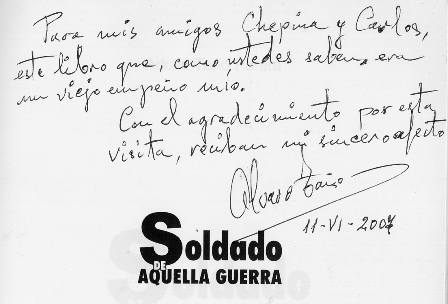 Para mis amigos Chepina y Carlos,
este libro que, como ustedes saben, era
un viejo empeño mío.
Con el agradecimiento por esta
visita, reciban mi sincero afecto
Alvaro
11-VI-2007
Soldado
DE
AQUELLA GUERRA